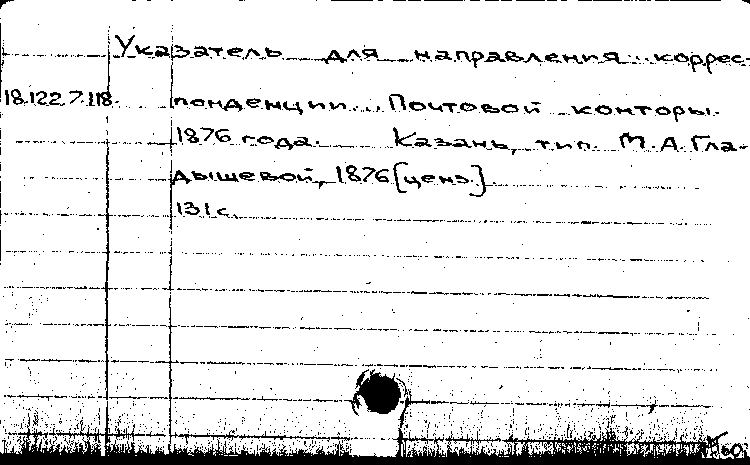 Указатель для направления... коррес-
18.122.7.118. понденции... Почтовой конторы.
1876 года. Казань, тип. М.А. Гла-
дышевой, 1876 [ценз.].
131 с.